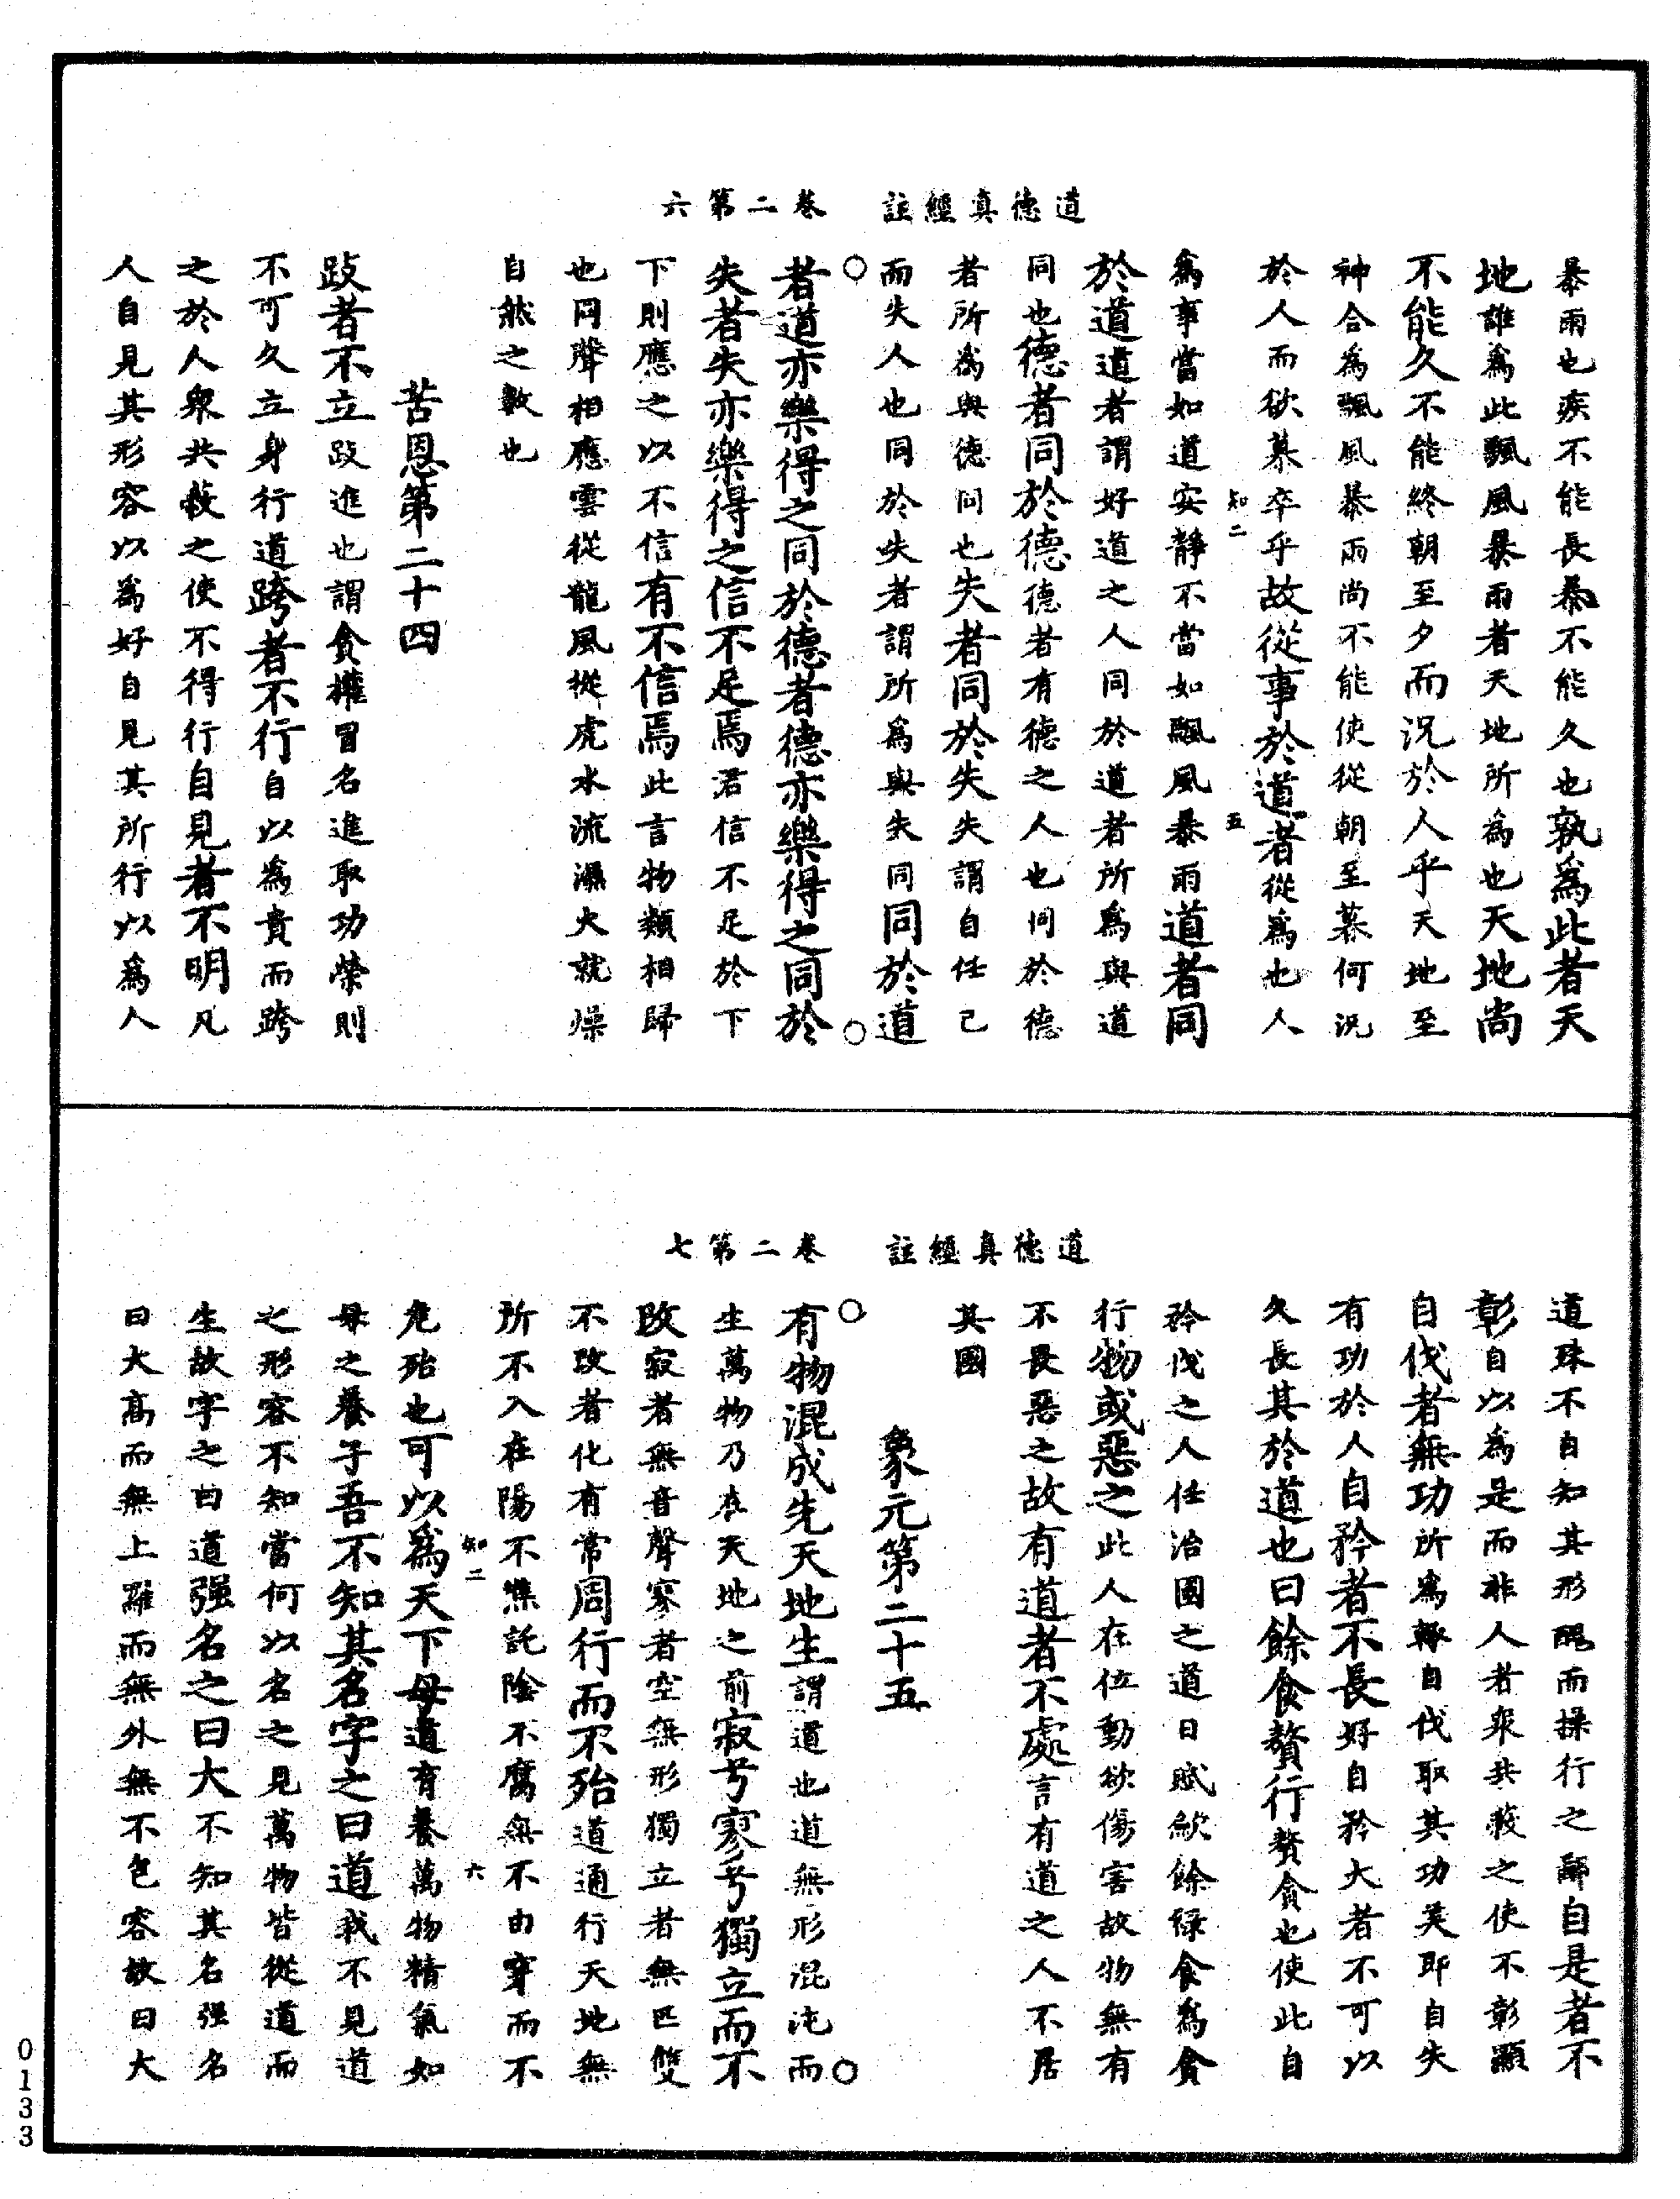 道德真經註　卷二第六
暴雨也疾不能長暴不能久也孰爲此者天
地誰爲此飄風暴雨者天地所爲也天地尚
不能久不能終朝至夕而況於人乎天地至
神合爲飄風暴雨尚不能使從朝至暮何況
於人而欲慕卒乎故從事於道者從爲也人
知二　五
爲事當如道安靜不當如飄風暴雨道者同
於道道者謂好道之人同於道者所爲與道
同也德者同於德德者有德之人也同於德
者所爲與德同也失者同於失失謂自任己
而失人也同於失者謂所爲與失同同於道
者道亦樂得之同於德者德亦樂得之同於
失者失亦樂得之信不足焉君信不足於下
下則應之以不信有不信焉此言物類相歸
也同聲相應雲從龍風從虎水流濕火就燥
自然之數也
苦恩第二十四
跂者不立跂進也謂貪權冒名進取功榮則
不可久立身行道跨者不行自以爲貴而跨
之於人衆共蔽之使不得行自見者不明凡
人自見其形容以爲好自見其所行以爲人
道德真經註　卷二第七
道殊不自知其形醜而操行之鄙自是者不
彰自以爲是而非人者衆共蔽之使不彰顯
自伐者無功所爲輙自伐取其功美即自失
有功於人自矜者不長好自矜大者不可以
久長其於道也曰餘食贅行贅貪也使此自
矜伐之人任治國之道日賦歛餘祿食爲貪
行物或惡之此人在位動欲傷害故物無有
不畏惡之故有道者不處言有道之人不居
其國
象元第二十五
有物混成先天地生謂道也道無形混沌而
生萬物乃在天地之前寂兮寥兮獨立而不
改寂者無音聲寥者空無形獨立者無匹雙
不改者化有常周行而不殆道通行天地無
所不入在陽不燋託陰不腐無不由穿而不
知二　六
危殆也可以爲天下母道育養萬物精氣如
母之養子吾不知其名字之曰道我不見道
之形容不知當何以名之見萬物皆從道而
生故字之曰道强名之曰大不知其名强名
曰大高而無上羅而無外無不包容故曰大
0133